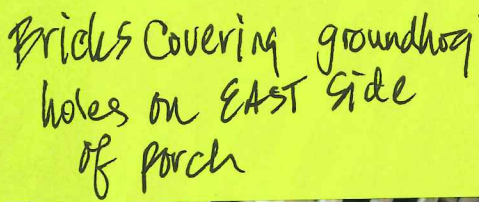 Bricks Covering groundhog
holes on EAST Side
of porch